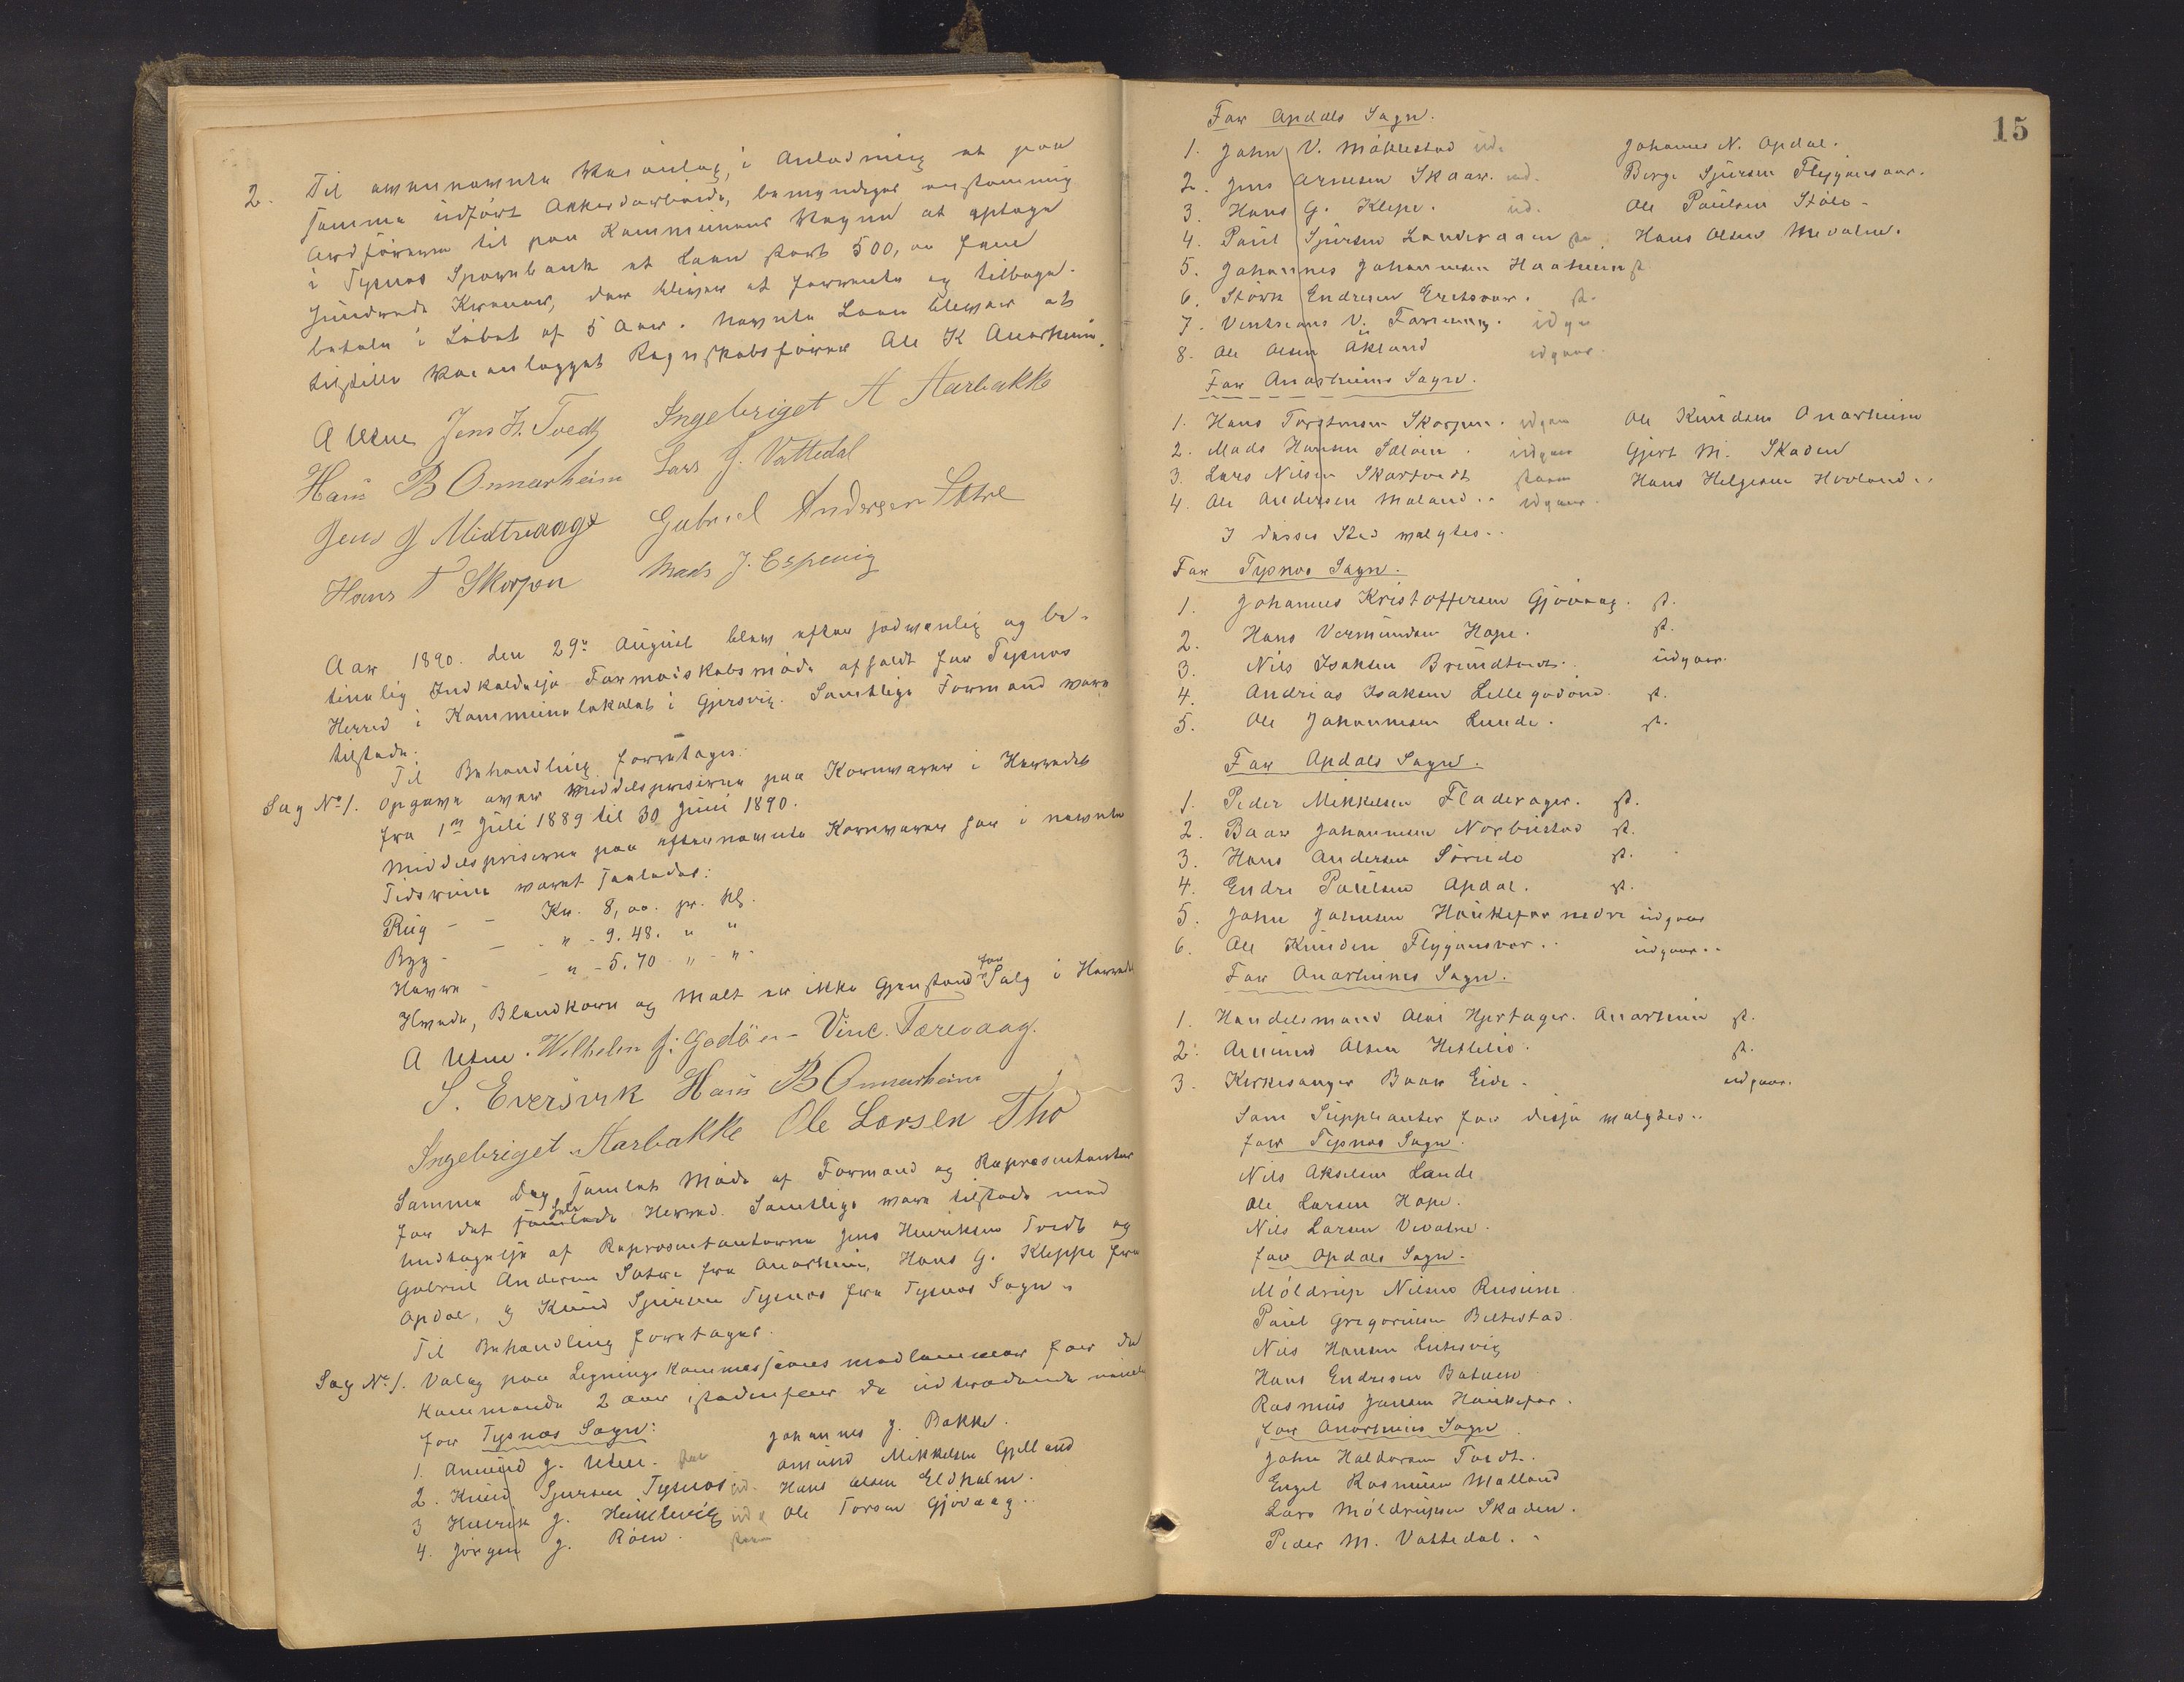 2. Til ovennævnte Veianlæg, i Anledning at paa
samme udført Akkordarbeide, bemyndiges enstemmig
Ordföreren til paa Kommunens Vegne at optage
i Tysnes Sparebank et Laan stort 500,00 fem
hundrede Kroner, der bliver at forrente og tilbage-
betale i Löbet af 5 Aar. Nævnte Laan bliver at
tilstille Veianlægget Regnskabsförer Ole K Onarheim.
A Uglene Jens H. Tvedt Ingebrigt A Aarbakke
Hans B Onnarheim Lars J. Vattedal
Jens J Midtvaage Gabriel Andersen Sætre
Hans T Skorpen Mads J. Espevig
Aar 1890 den 29de August blev efter sædvanlig og be-
timelig Indkaldelse Formandskabsmöde afholdt for Tysnes
Herred i Kommunelokalet i Gjersvig. Samtlige Formænd vare
tilstede.
Til Behandling foretages:
Sag No 1. Opgave over Middelpriserne paa Kornvarer i Herredet
fra 1ste Juli 1889 til 30 Juni 1890.
Middelpriserne paa efternævnte Kornvarer har i nævnte
Tidsrum været saaledes:
Rug - - Kr. 8,00. pr. hl.
Byg - - - " - 9.48. " "
Havre - - " - 5.70 - " - " -
Hvede, Blandkorn og Malt er ikke Gjenstand for Salg i Herredet
A Uglene. Wilhelm J. Godöen - Vinc. Færevaag.
S. Eversvik Hans B Onnarheim
Ingebrigt Aarbakke Ole Larsen Thó
Samme Dag samlet Möde af Formænd og Repræsentanter
for det hele Herred. Samtlige vare tilstede med
Undtagelse af Repræsentanterne Jens Henriksen Tvedt og
Gabriel Andersen Sætre fra Onarheim, Hans G. Kleppe fra
Opdal, og Knud Sjursen Tysnes fra Tysnes Sogn.
Til Behandling foretages.
Sag No 1. Valg paa Ligningskommissionsmedlemmer for de
kommende 2 Aar istedenfor de udtrædende
for Tysnes Sogn:
1. Amund J. Uglene. Johannes J. Bakke.
2. Knud Sjursen Tysnes ud. Amund Mikkelsen Gjelland
3 Henrik J. ud Hans Olsen Eldholm.
4. Jörgen J. Röen. Ole Torsen Gjövaag..
15
For Opdals Sogn.
1. John V. Móklestad ud. Johannes N. Opdal.
2. Jens Arnesen Skaar. ud. Börge Sjursen Flygansvær.
3. Hans G. Klepe. ud. Ole Paulsen Stóle.
4. Paul Sjursen Landevaagen st. Hans Olsen Mevatne.
5. Johannes Johannesen Haaheim st.
6. Störk Endresen Eretsvær. st.
7. V. Færevaag. udgr
8. Ole Olsen Ókland udgaar.
For Onarheims Sogn.
1. Hans Torstensen Skorpen. udgaar Ole Knudsen Onarheim
2. Mads Hansen udgaar Gjert M. Skaden
3. Lars Nilsen Skartvedt staar Hans Helgesen Hovland..
4. Ole Andersen Maland.. udgaar.
I disses Sted valgtes..
For Tysnes Sogn.
1. Johannes Kristoffersen Gjövaag. st.
2. Hans Vermundsen Hope. st.
3. Nils Isaksen Brundtvedt. udgaar.
4. Andrias Isaksen Lillegodöen. st.
5. Ole Johannesen Lunde. st.
For Opdals Sogn.
1. Peder Mikkelsen Fladerager. st.
2. Baar Johannesen Norbustad st.
3. Hans Andersen Söreide st.
4. Endre Paulsen Opdal. st.
5. John Johnsen Haukefær nedre udgaar
6. Ole Knudsen Flygansvær.. udgaar..
For Onarheims Sogn.
1. Handelsmand Olai Hjertager. Onarheim st.
2. Amund Olsen Hetlelid. st.
3. Kirkesanger Baar Eide. udgaar.
Som Suppleanter for disse valgtes..
for Tysnes Sogn.
Nils Akselsen Lande
Ole Larsen Hope.
Nils Larsen Vevatne.
for Opdals Sogn.
Móldrup Nilsen Reiseim.
Paul Gregoriusen Beltestad.
Nils Hansen
Hans Endresen Botnen
Rasmus Jansen Haukefær.
for Onarheims Sogn
John Haldorsen Tvedt..
Engel Rasmusen Malland
Lars Móldrupsen Skaden.
Peder M. Vattedal..